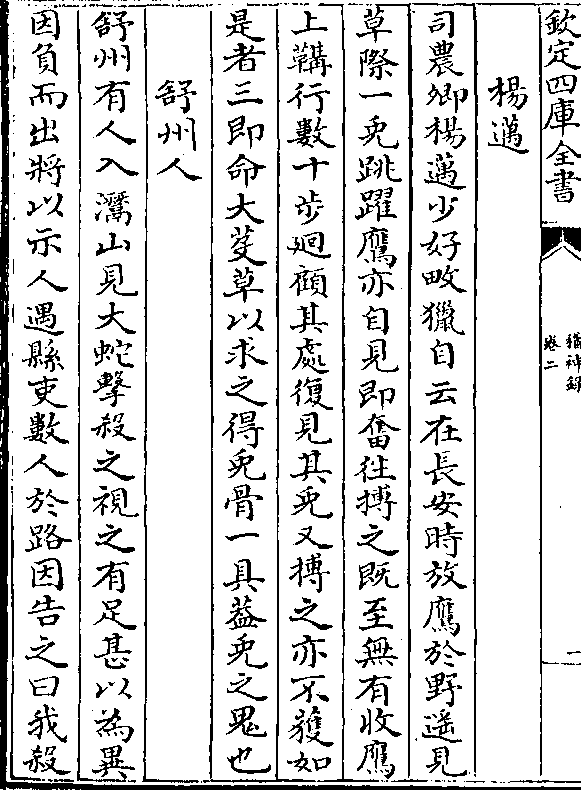 欽定四庫全書
稽神録
卷二
一
楊邁
司農卿楊邁少好畋獵自云在長安時放鷹於野遥見
草際一兎跳躍鷹亦自見即奮往搏之既至無有收鷹
上鞲行數十歩迴顧其處復見其兎又搏之亦不獲如
是者三即命大芟草以求之得兎骨一具葢兎之鬼也
舒州人
舒州有人入灊山見大蛇擊殺之視之有足甚以為異
因負而出將以示人遇縣吏數人於路因告之曰我殺